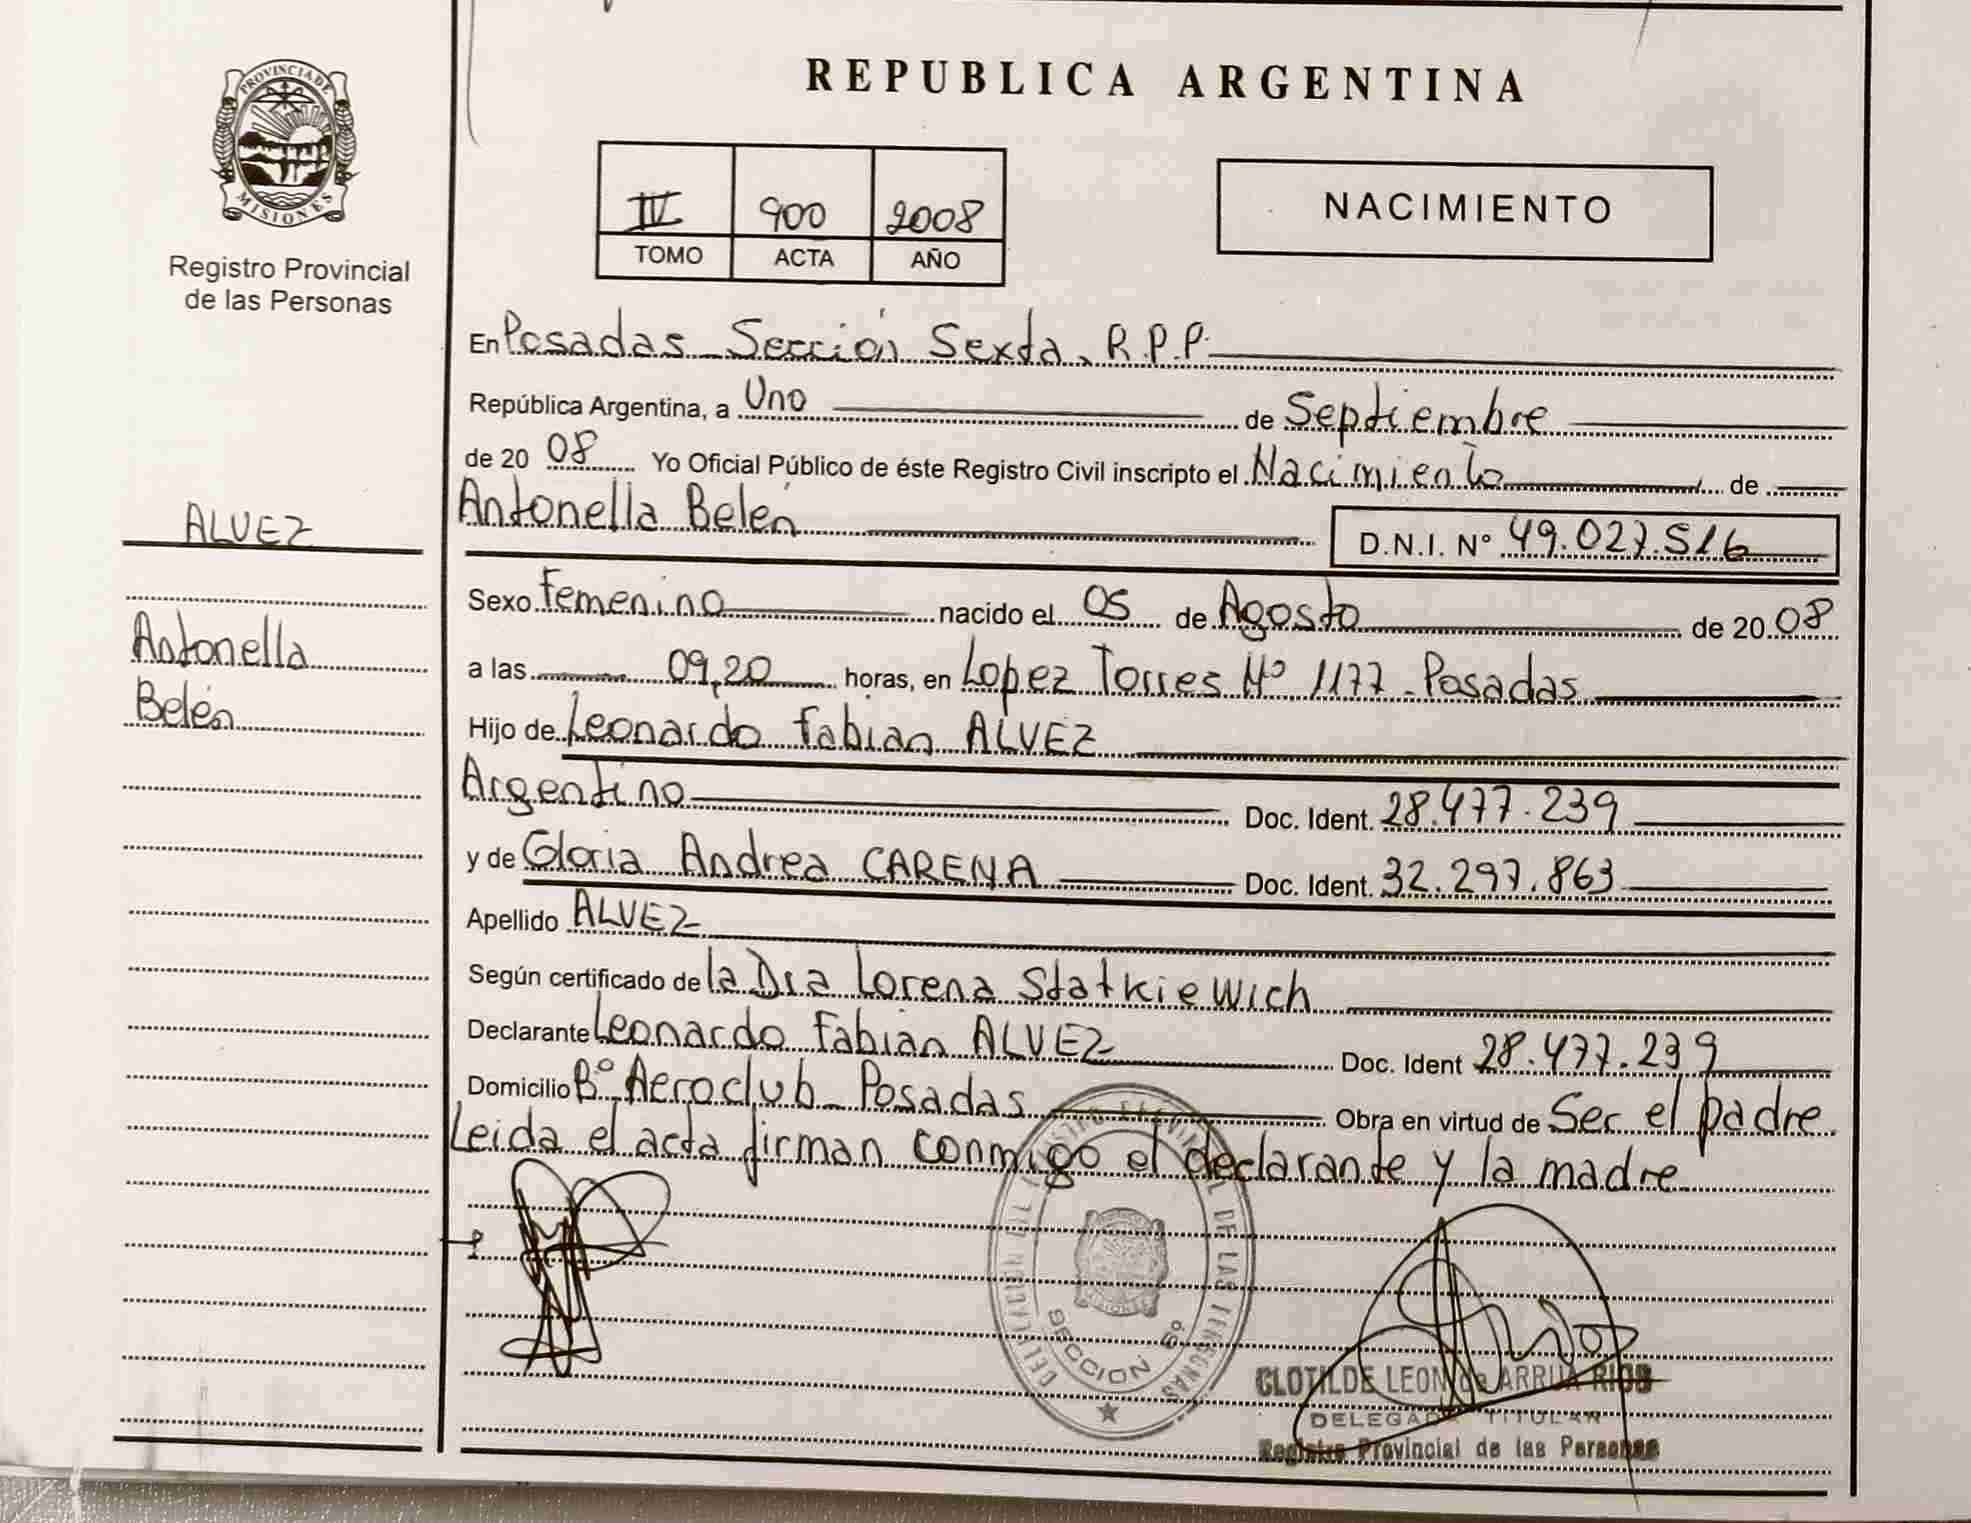 PROVINCIA DE
MISIONES
Registro Provincial
de las Personas
ALVEZ
Antonella
Belén
REPUBLICA ARGENTINA
IV 900 2008
TOMO ACTA AÑO
NACIMIENTO
En Posadas Sección Sexta, R.P.P.
República Argentina, a Uno de Septiembre
de 20 08 Yo Oficial Público de éste Registro Civil inscripto el Nacimiento de
Antonella Belén D.N.I. Nº 49.027.516
Sexo Femenino nacido el 05 de Agosto de 20 08
a las 09,20 horas, en Lopez Torres Nº 1177 - Posadas
Hijo de Leonardo Fabian ALVEZ
Argentino Doc. Ident. 28.477.239
y de Gloria Andrea CARENA Doc. Ident. 32.297.863
Apellido ALVEZ
Según certificado de la Dra Lorena Statkiewich
Declarante Leonardo Fabian ALVEZ Doc. Ident 28.477.239
Domicilio Bº Aeroclub - Posadas Obra en virtud de Ser el padre.
Leida el acta firman conmigo el declarante y la madre
DE LAS PERSONAS
MISIONES
SECCION 6º
CLOTILDE LEON de ARRUA RIOS
DELEGADA TITULAR
Registro Provincial de las Personas